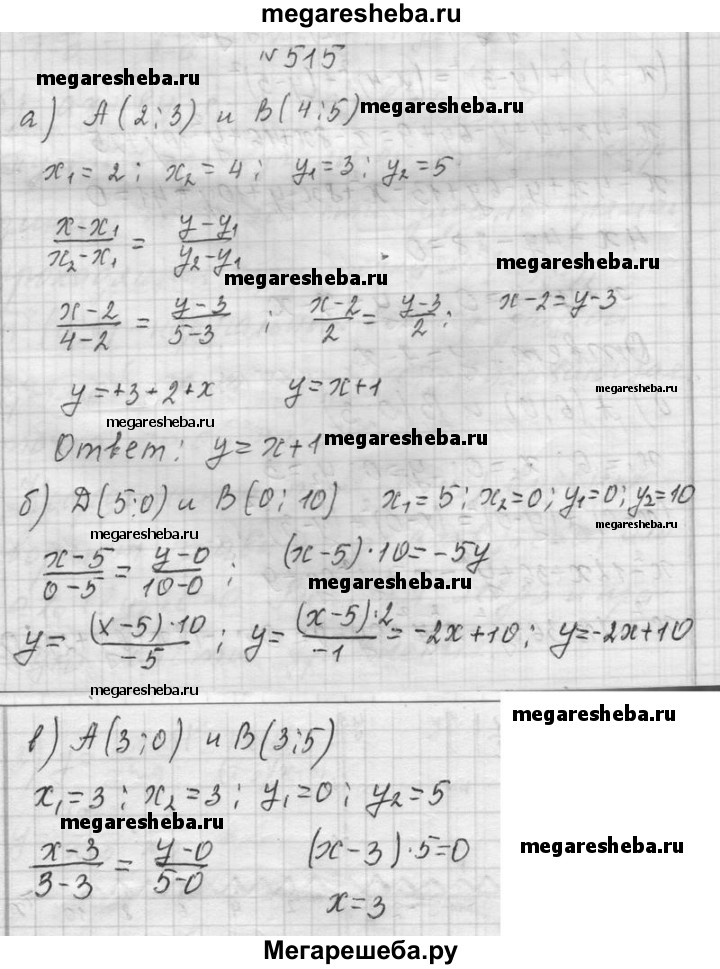 megaresheba.ru
№515
megaresheba.ru
а) А(2;3) и В(4;5) megaresheba.ru
x₁ = 2; x₂ = 4; y₁=3; y₂=5
(x-x₁)/(x₂-x₁) = (y-y₁)/(y₂-y₁)
megaresheba.ru megaresheba.ru
(x-2)/(4-2) = (y-3)/(5-3); (x-2)/2 = (y-3)/2; x-2=y-3
y=+3-2+x y=x+1 megaresheba.ru
megaresheba.ru
Ответ: y=x+1 megaresheba.ru
б) D(5;0) и В(0;10) x₁=5; x₂=0; y₁=0; y₂=10
megaresheba.ru megaresheba.ru
(x-5)/(0-5) = (y-0)/(10-0); (x-5)·10=-5y
megaresheba.ru
y= (x-5)·10/-5; y= (x-5)·2/-1 = -2x+10; y=-2x+10
megaresheba.ru
megaresheba.ru
в) А(3;0) и В(3;5)
x₁=3; x₂=3; y₁=0; y₂=5
megaresheba.ru
(x-3)/(3-3) = (y-0)/(5-0) (x-3)·5=0 megaresheba.ru
x=3
Мегарешеба.ру